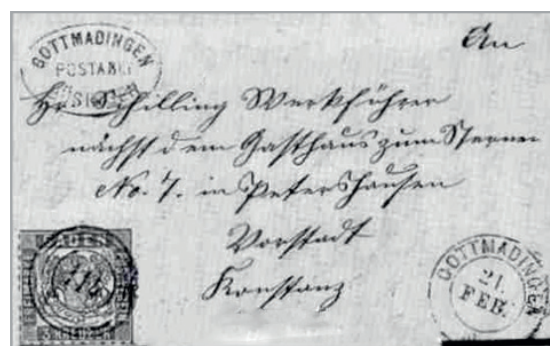 GOTTMADINGEN
POSTABLAGE
An
Hr Schilling Werkführer
nächst dem Gasthaus zum Sternen
No. 7. in Petershausen
Vorstadt
Konstanz
BADEN
FREIMARKE
3 KREUZER
GOTTMADINGEN
21.
FEB.